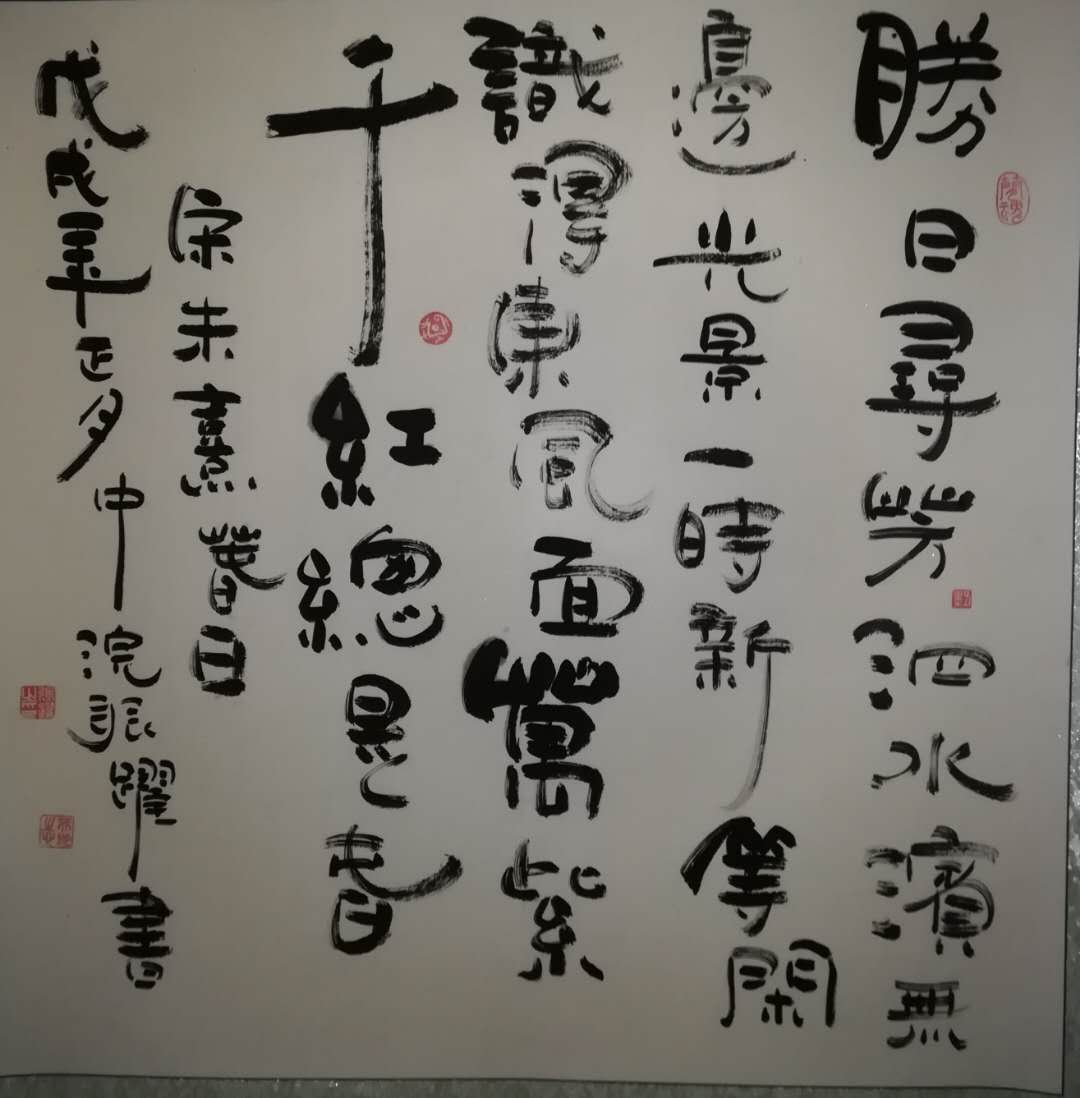 勝日尋芳泗水濱無
邊光景一時新等閑
識得東風面萬紫
千紅總是春
宋朱熹春日
戊戌年正月中浣張躍書